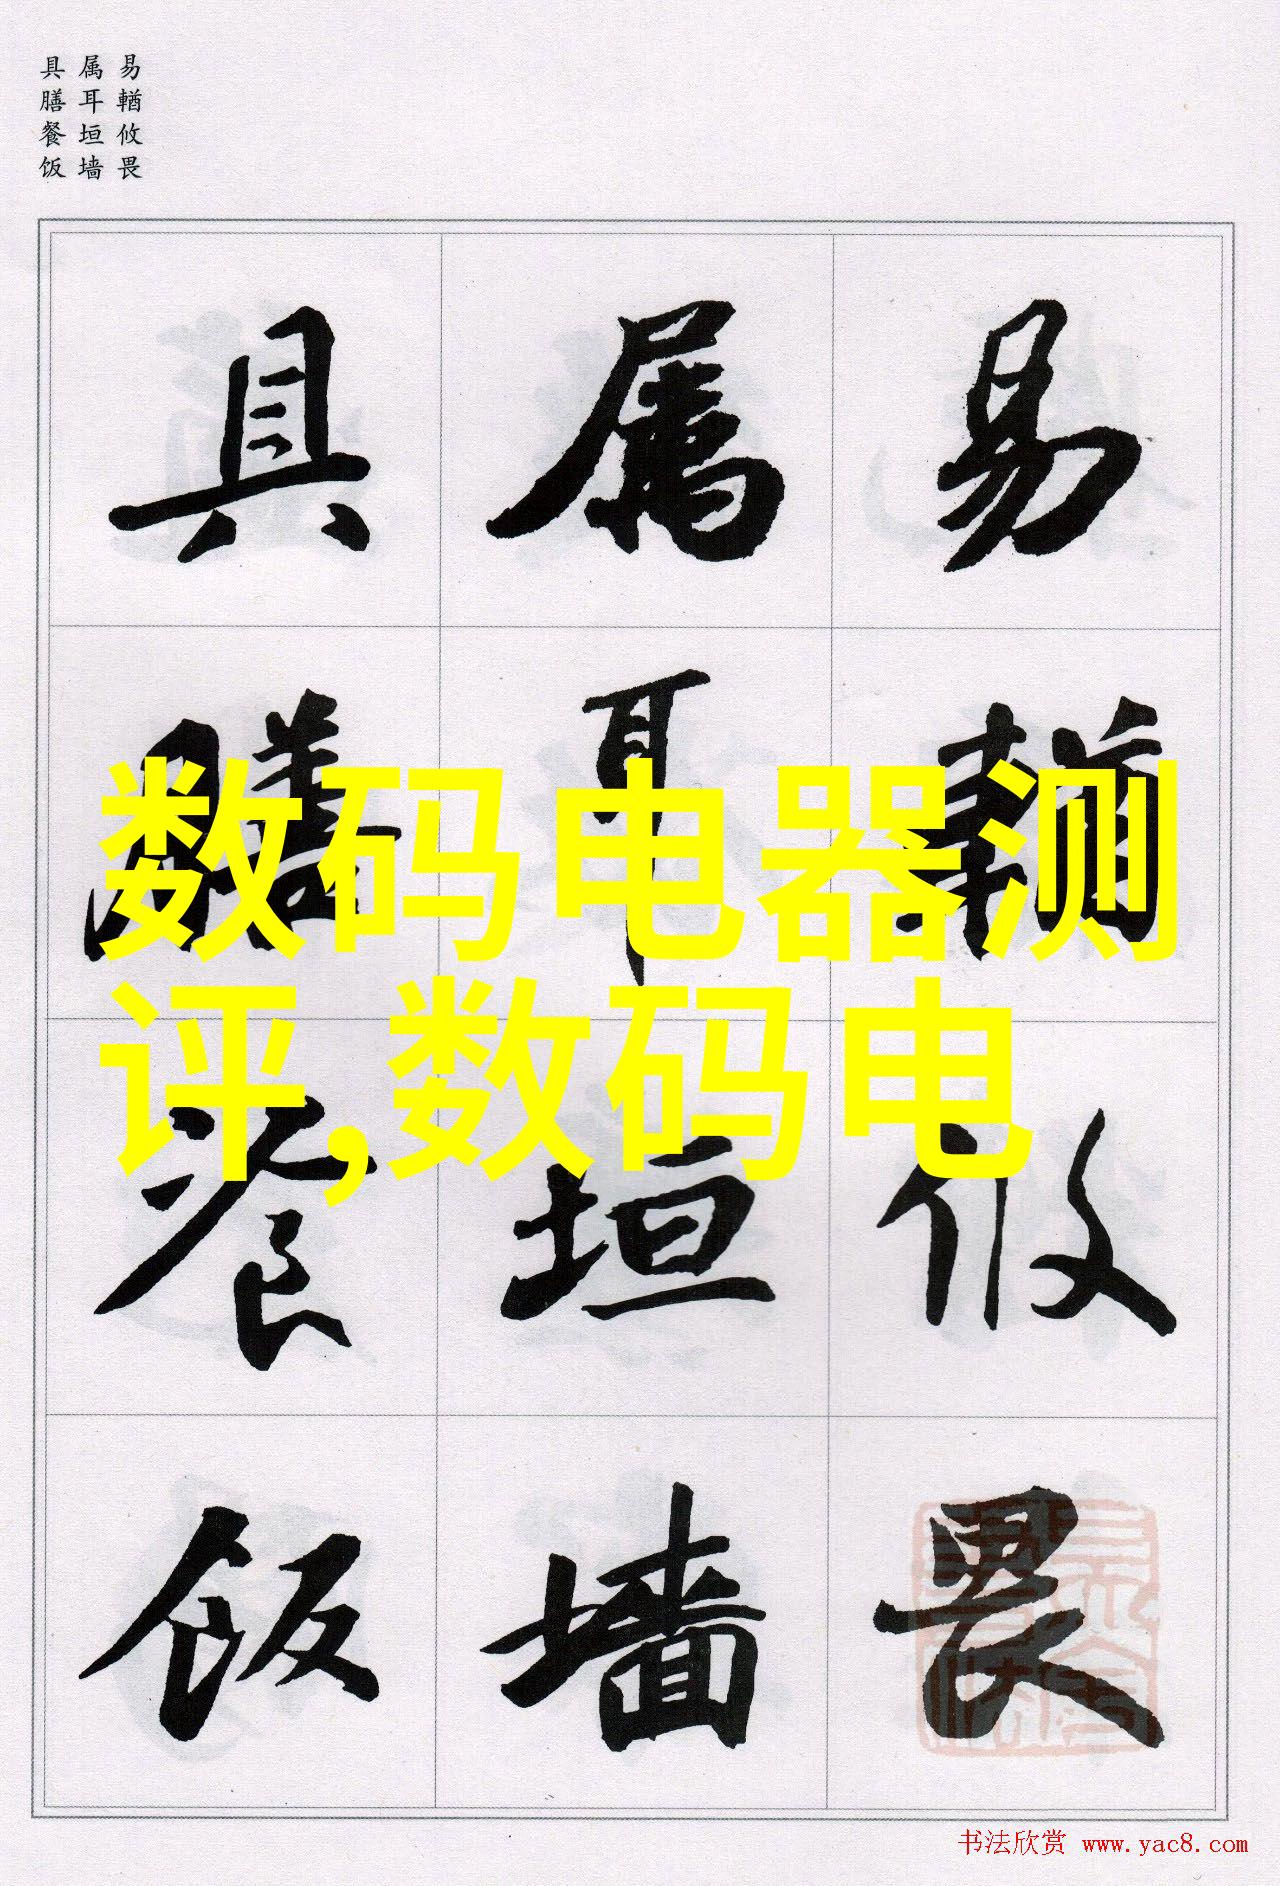 易輶攸畏
属耳垣墙
具膳餐饭
易輶攸畏
属耳垣墙
具膳餐饭
数码电器测
评,数码电
书法欣赏 www.yac8.com